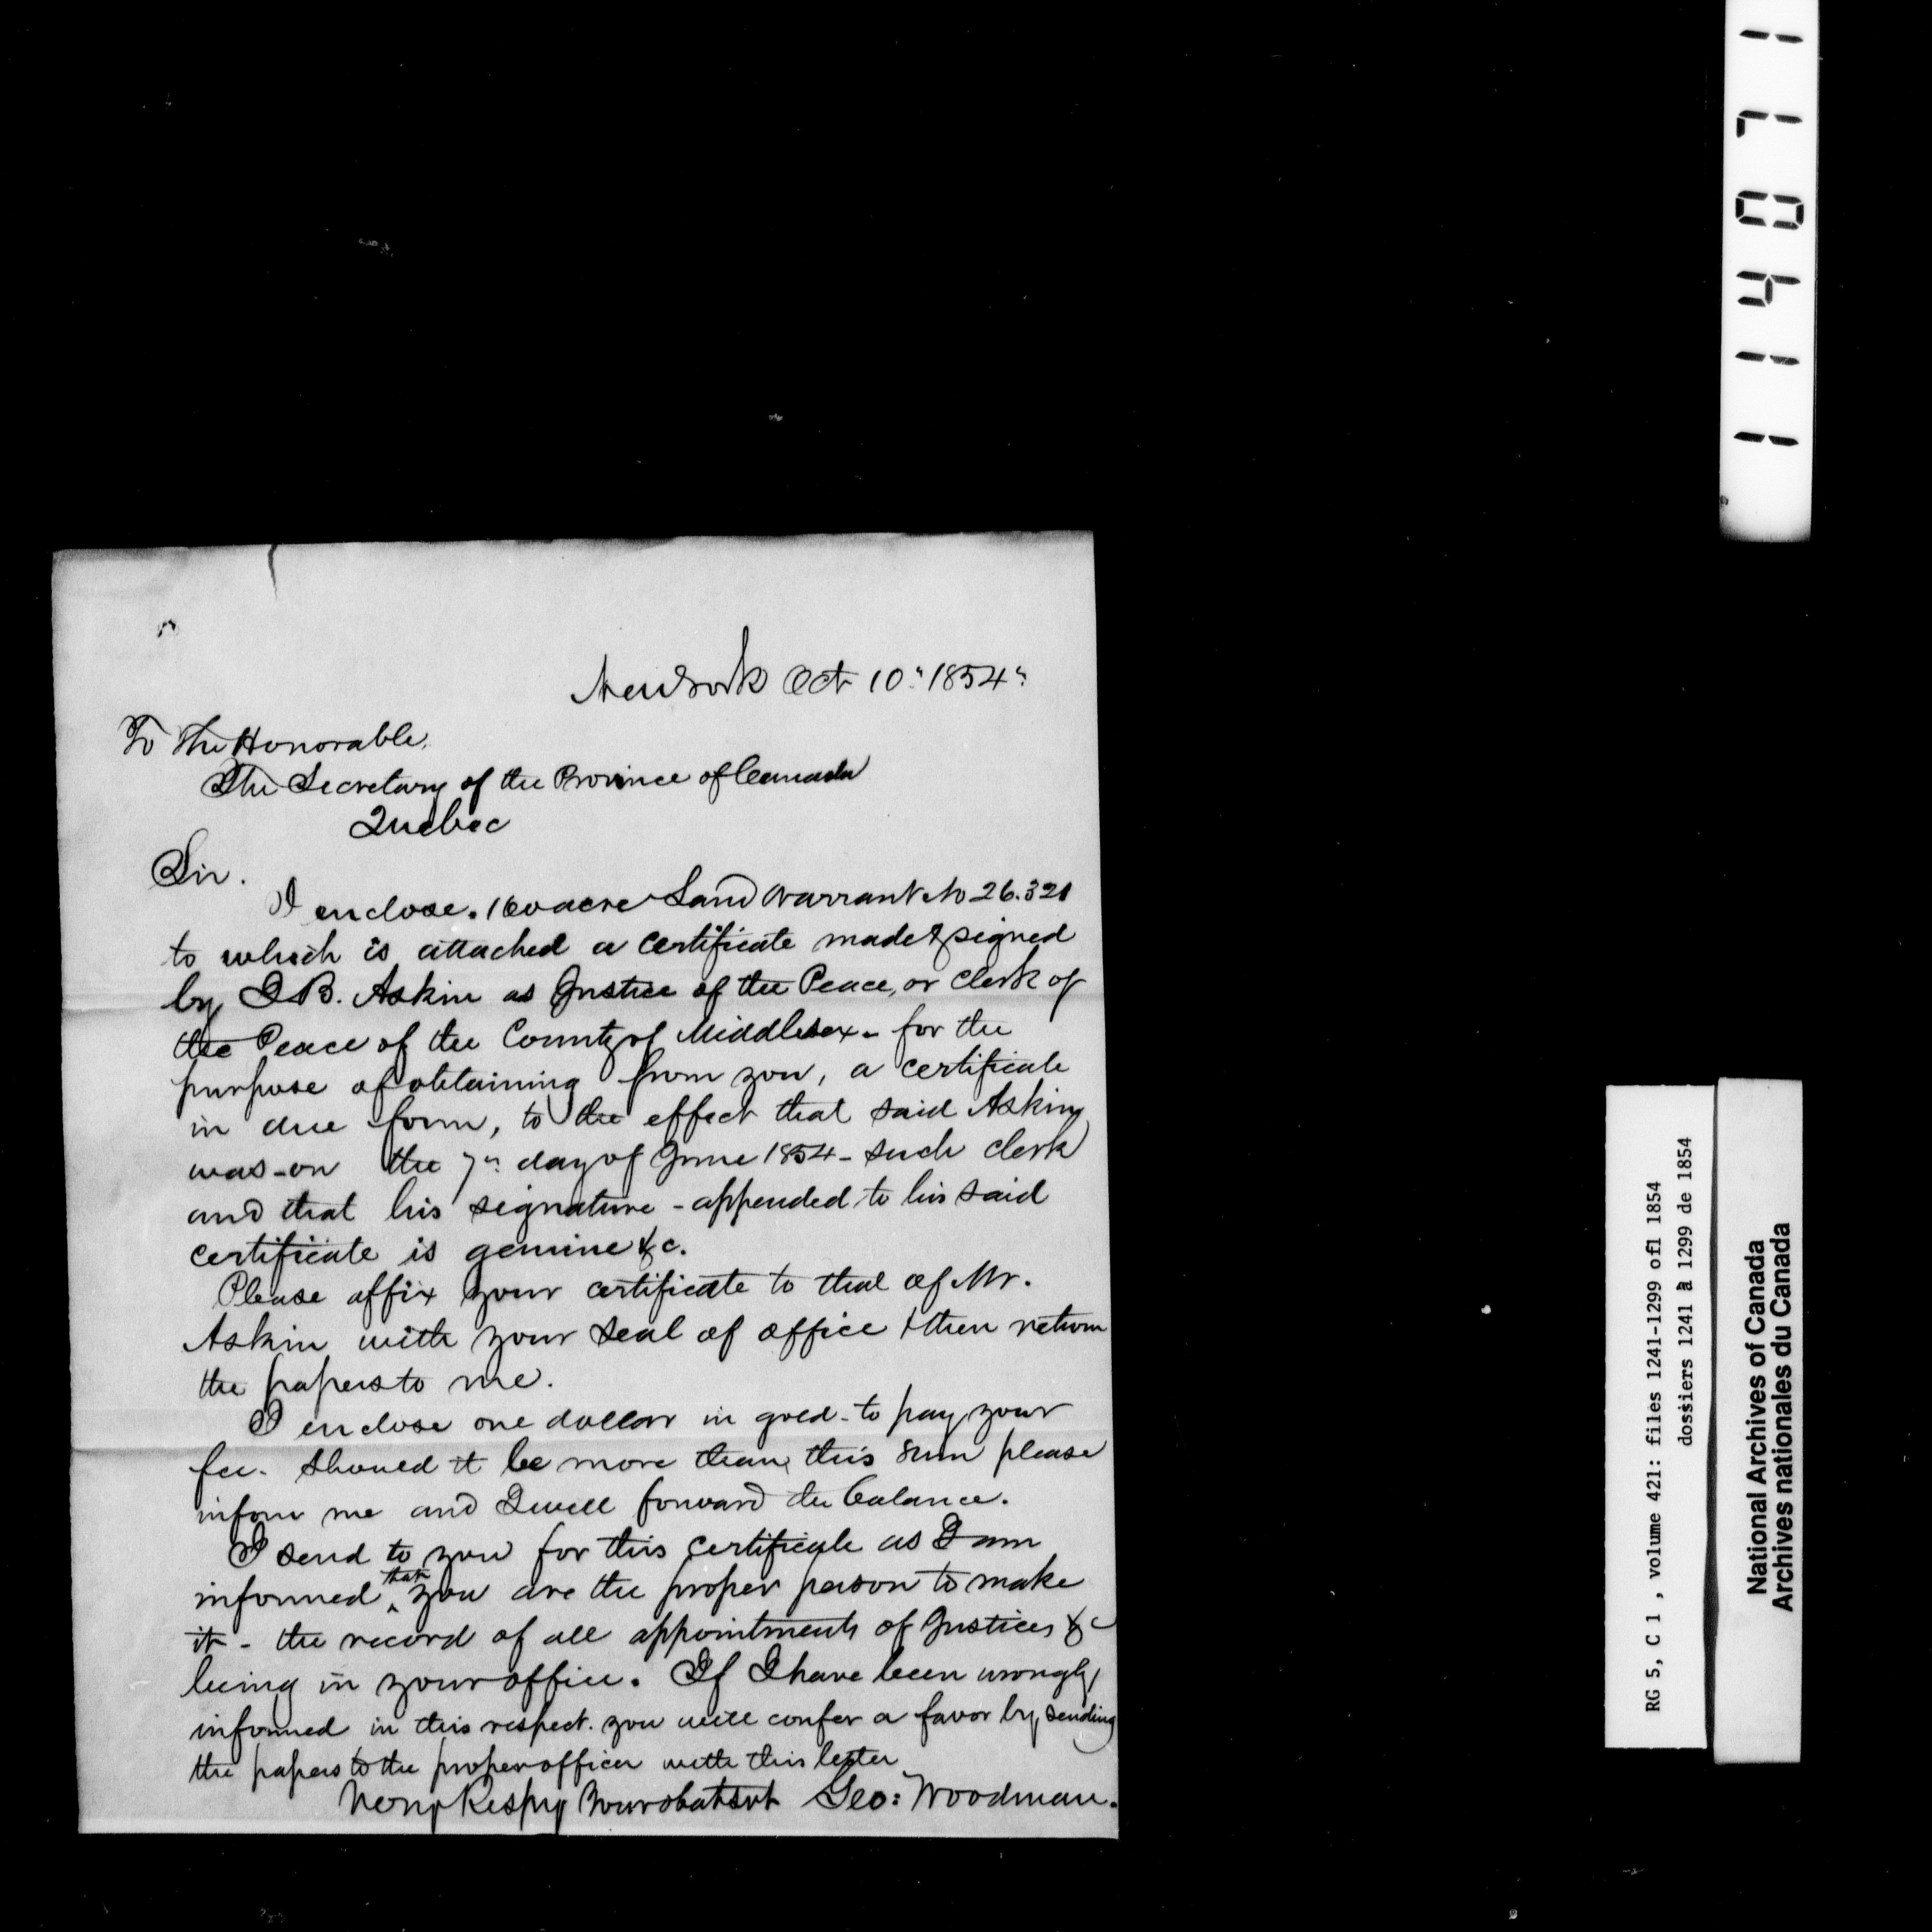 New York Oct 10th 1854.
To The Honorable.
The Secretary of the Province of Canada
Quebec
Sir.
I enclose. 160 acre Land Warrant No 26.321
to which is attached a certificate made & signed
by J B. Askin as Justice of the Peace, or Clerk of
the Peace of the County of Middlesex - for the
purpose of obtaining from you, a certificate
in due form, to the effect that said Askin,
was - on the 7th day of June 1854 - such clerk
and that his signature - appended to his said
certificate is genuine &c.
Please affix your certificate to that of Mr.
Askin with your seal of office & then return
the papers to me.
I enclose one dollar in gold - to pay your
fee. Should it be more than this sum please
inform me and I will forward the balance.
I send to you for this certificate as I am
informed that you are the proper person to make
it - the record of all appointments of Justices &c
being in your office. If I have been wrongly
informed in this respect. you will confer a favor by sending
the papers to the proper officer with this letter
Very Respy Your obt Svt Geo: Woodman.
11407 1
RG 5, C 1 , volume 421: files 1241-1299 of1 1854
dossiers 1241 à 1299 de 1854
National Archives of Canada
Archives nationales du Canada